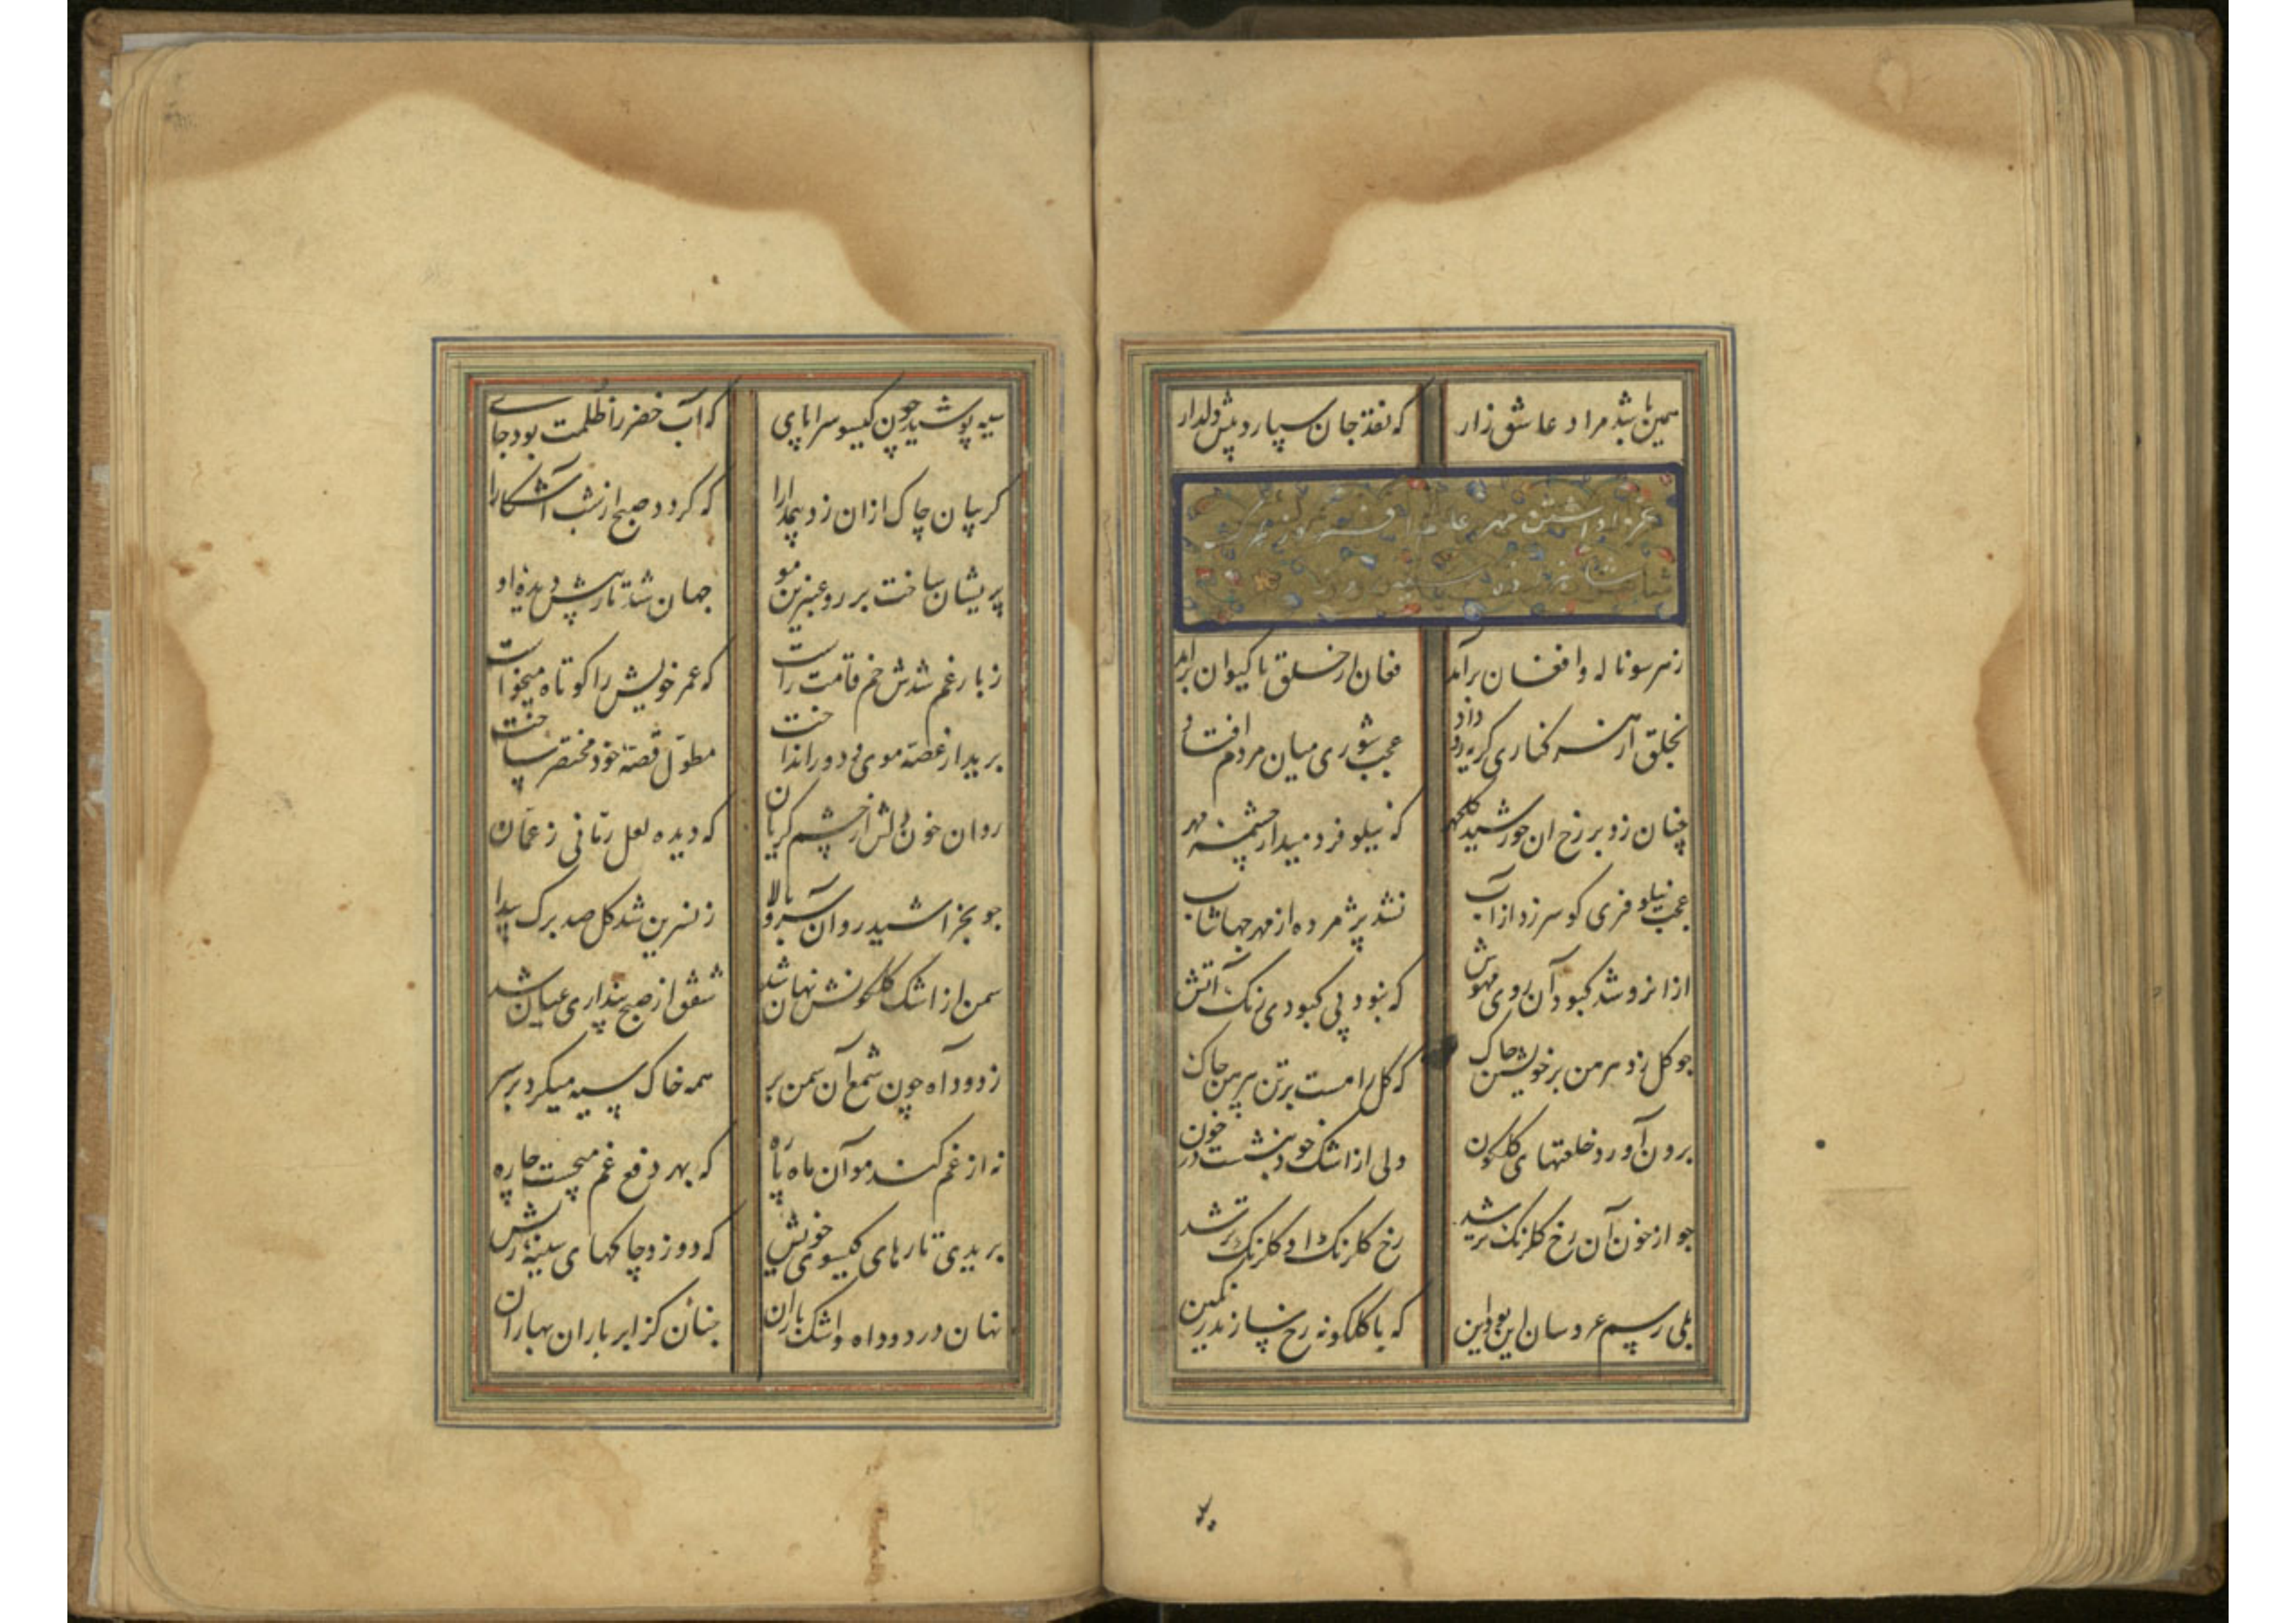 همین باشد مراد عاشق زار که نقد جان سپارد پیش دلدار
عزا داشتن مهر
ز هر سو ناله و افغان برآمد فغان از خلق تا کیوان برآمد
بخلق از هر کناری گریه رو داد عجب شوری میان مردم افتاد
چنان زد بر رخ ان خورشید گلچهر که نیلوفر دمید از چشمه مهر
عجب نیلوفری کو سر زد از آب نشد پژمرده از مهر جهانتاب
ازانرو شد کبود آن روی مهوش که نبود بی کبودی رنک آتش
جو کل زد پیرهن بر خویشتن جاک که کل را هست بر تن پیرهن جاک
برون آورد خلعتهای کلکون ولی از اشک خود بنشست در خون
جو از خون آن رخ کلرنک تر شد رخ کلرنک او کلرنک تر شد
بلی رسم عروسان این بود این که با کلکونه رخ سازند رنکین
سیه پوشید چون کیسو سراپای که آب خضر را ظلمت بود جای
کریبان چاک ازان زد بیمدارا که کردد صبح از شب آشکارا
پریشان ساخت بر رو عنبرین مو جهان شد تار پیش دیده او
ز بار غم شدش خم قامت راست که عمر خویش را کوتاه میخواست
برید از غصه موی و دور انداخت مطول قصه خود مختصر ساخت
روان خون دلش از چشم کریان که دیده لعل رمانی ز عمان
جو بخراشید روان سرو بالا ز نسرین شد کل صد برک پیدا
سمن از اشک کلکونش نهان شد شفق از صبح پنداری عیان شد
ز دود آه چون شمع آن سمن بر همه خاک سیه میکرد بر سر
نه از غم کند مو آن ماه پاره که بهر دفع غم میجست چاره
بریدی تارهای کیسوی خویش که دوزد چاکهای سینه ریش
نهان در دود آه و اشک باران جنان کز ابر باران بهاران